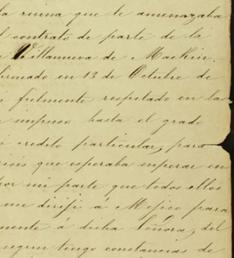 la ruina que le amenazaba
el contrato de parte de la
Villanueva de Mackin.
firmado en 13 de Octubre de
fielmente respetado en la
impreso hasta el grado
credito particular, pero
que esperaba imperar en
por mi parte que todos ellos
me dirijí á Mejico para
mente á dicha Señora, del
segun tengo constancias de